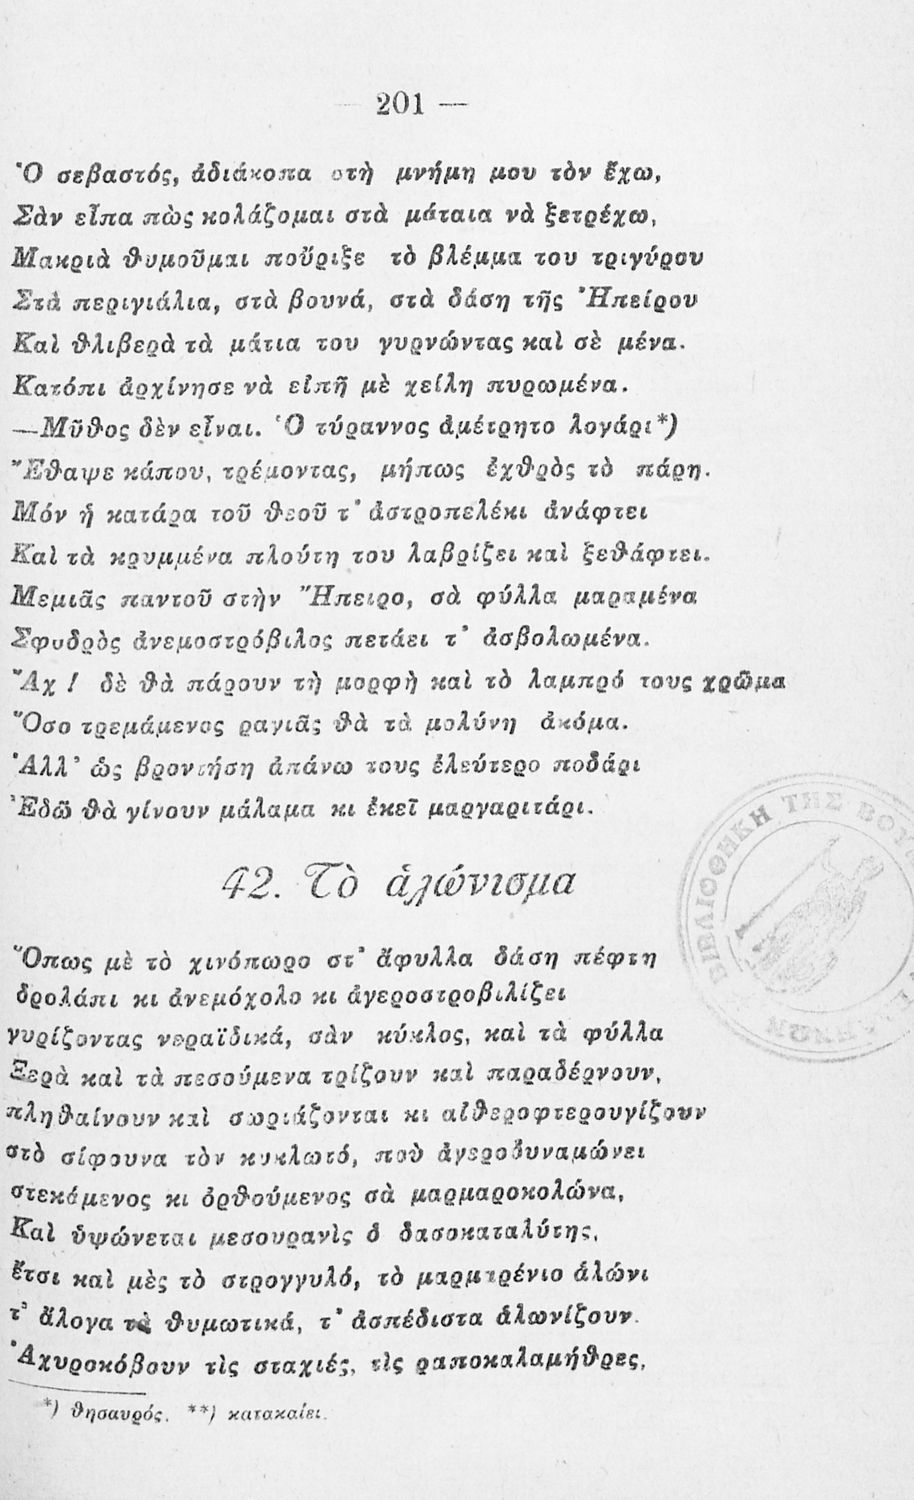 — 201 —
Ὁ σεβαστός, ἀδιάκοπα στὴ μνήμη μου τὸν ἔχω,
Σὰν εἶπα πὼς κολάζομαι στὰ μάταια νὰ ξετρέχω,
Μακριὰ θυμοῦμαι ποὔριξε τὸ βλέμμα του τριγύρου
Στὰ περιγιάλια, στὰ βουνά, στὰ δάση τῆς Ἠπείρου
Καὶ θλιβερὰ τὰ μάτια του γυρνώντας καὶ σὲ μένα.
Κατόπι ἀρχίνησε νὰ εἰπῆ μὲ χείλη πυρωμένα.
—Μῦθος δὲν εἶναι. Ὁ τύραννος ἀμέτρητο λογάρι*)
Ἔθαψε κάπου, τρέμοντας, μήπως ἐχθρὸς τὸ πάρη.
Μόν ἡ κατάρα τοῦ θεοῦ τ' ἀστροπελέκι ἀνάφτει
Καὶ τὰ κρυμμένα πλούτη του λαβρίζει καὶ ξεθάφτει.
Μεμιᾶς παντοῦ στὴν Ἤπειρο, σὰ φύλλα μαραμένα
Σφυδρὸς ἀνεμοστρόβιλος πετάει τ' ἀσβολωμένα.
Ἄχ ! δὲ θὰ πάρουν τὴ μορφὴ καὶ τὸ λαμπρό τους χρῶμα
Ὅσο τρεμάμενος ραγιᾶς θὰ τὰ μολύνη ἀκόμα.
Ἀλλ' ὡς βροντήση ἀπάνω τους ἐλεύτερο ποδάρι
Ἐδῶ θὰ γίνουν μάλαμα κι ἐκεῖ μαργαριτάρι.
42. Τὸ ἁλώνισμα
Ὅπως μὲ τὸ χινόπωρο στ' ἄφυλλα δάση πέφτη
δρολάπι κι ἀνεμόχολο κι ἀγεροστροβιλίζει
γυρίζοντας νεραϊδικά, σὰν κύκλος, καὶ τὰ φύλλα
Ξερὰ καὶ τὰ πεσούμενα τρίζουν καὶ παραδέρνουν,
πληθαίνουν καὶ σωριάζονται κι αἰθεροφτερουγίζουν
στὸ σίφουνα τὸν κυκλωτό, ποὺ ἀγεροδυναμώνει
στεκάμενος κι ὀρθούμενος σὰ μαρμαροκολώνα,
Καὶ ὑψώνεται μεσουρανὶς ὁ δασοκαταλύτης,
ἔτσι καὶ μὲς τὸ στρογγυλό, τὸ μαρμαρένιο ἁλώνι
τ' ἄλογα τὰ θυμωτικά, τ' ἀσπέδιστα ἁλωνίζουν.
Ἀχυροκόβουν τὶς σταχιές, τὶς ραποκαλαμήθρες,
*) θησαυρός. **) κατακαίει.
ΒΙΒΛΙΟΘΗΚΗ ΤΗΣ ΒΟΥΛ